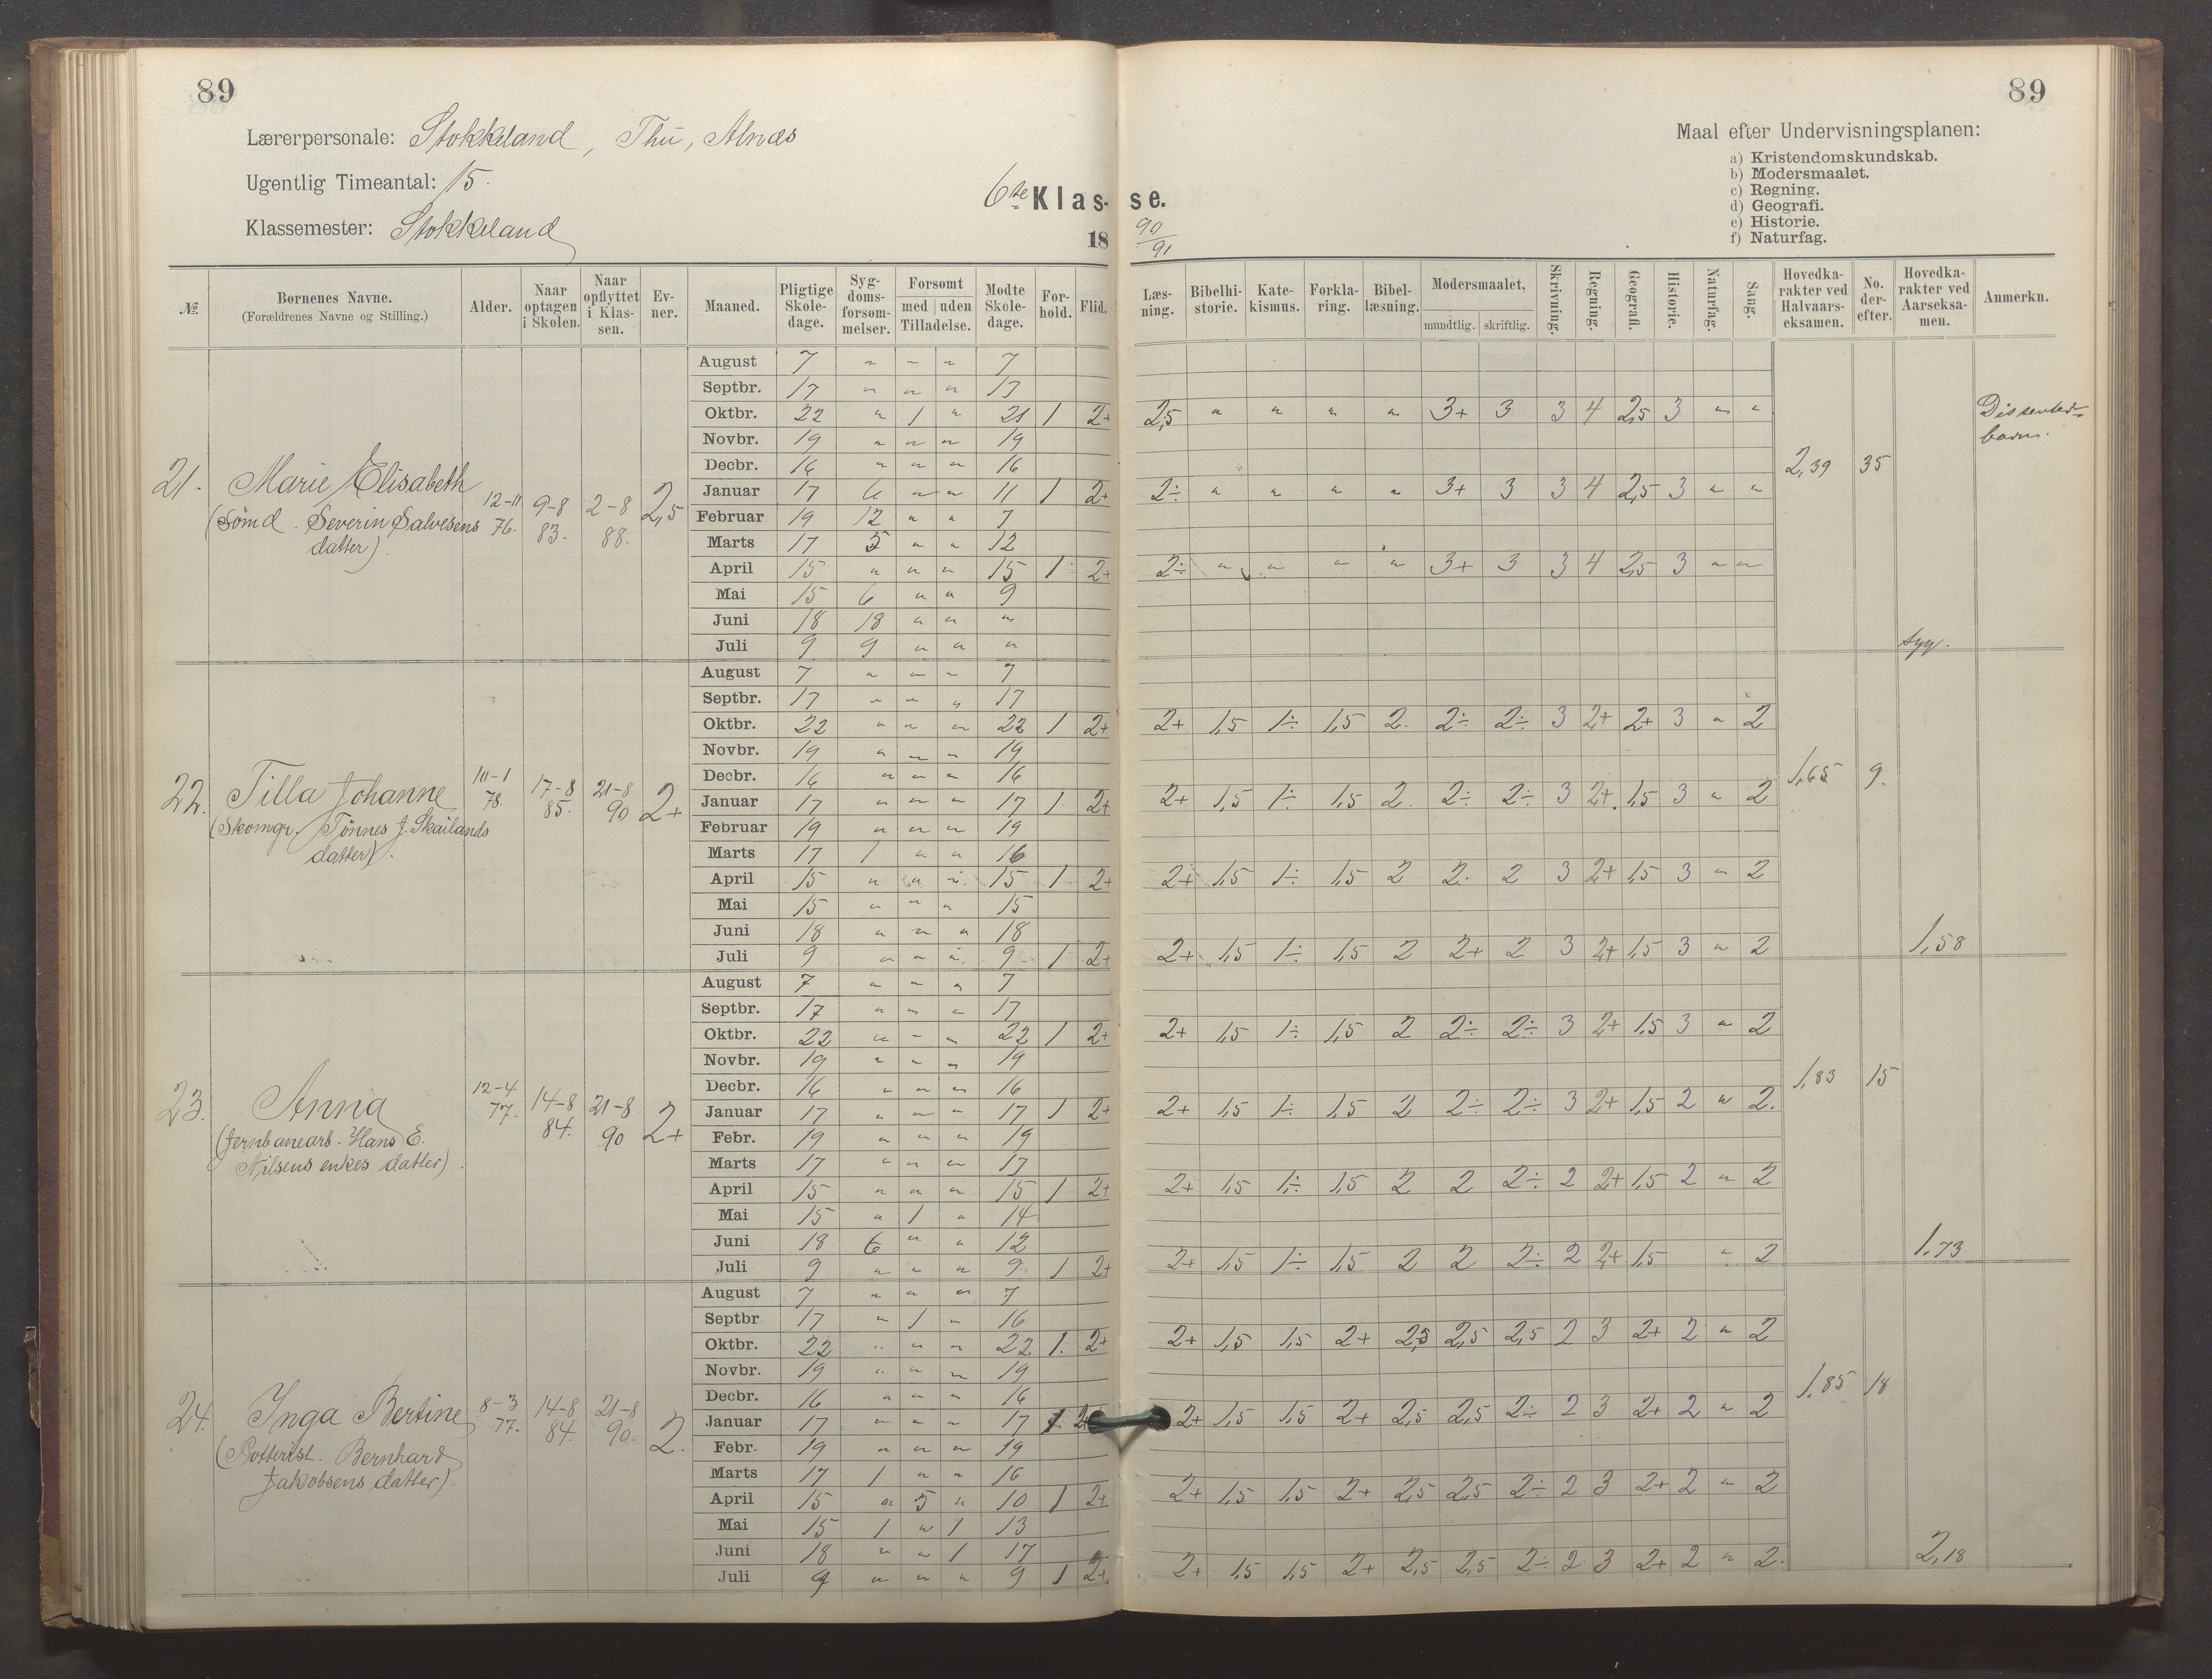 89
89
Lærerpersonale: Stokkeland, Thu, Alnæs
Ugentlig Timeantal: 15.
Klassemester: Stokkeland
6te Klas- se.
18 90/91
Maal efter Undervisningsplanen:
a) Kristendomskundskab.
b) Modersmaalet.
c) Regning.
d) Geografi.
e) Historie.
f) Naturfag.
№ | Børnenes Navne. (Forældrenes Navne og Stilling.) | Alder. | Naar optagen i Skolen. | Naar opflyttet i Klassen. | Evner. | Maaned. | Pligtige Skoledage. | Sygdomsforsømmelser. | Forsømt med uden Tilladelse. | Mødte Skoledage. | Forhold. | Flid. | Læsning. | Bibelhistorie. | Katekismus. | Forklaring. | Bibellæsning. | Modersmaalet, mundtlig. skriftlig. | Skrivning. | Regning. | Geografi. | Historie. | Naturfag. | Sang. | Hovedkarakter ved Halvaarseksamen. | No. derefter. | Hovedkarakter ved Aarseksamen. | Anmerkn.
21. Marie Elisabeth
(Sømd. Severin Salvesens
datter).
12-11 76. 9-8 83. 2-8 88. 2,5
August 7 " " " 7
Septbr. 17 " " " 17
Oktbr. 22 " 1 " 21 1 2+ 2,5 " " " " 3+ 3 3 4 2,5 3 " "
Novbr. 19 " " " 19
Decbr. 16 " " " 16
Januar 17 6 " " 11 1 2+ 2÷ " " " " 3+ 3 3 4 2,5 3 " "
Februar 19 12 " " 7
Marts 17 5 " " 12
April 15 " " " 15 1 2+ 2÷ " " " " 3+ 3 3 4 2,5 3 " "
Mai 15 6 " " 9
Juni 18 18 " " "
Juli 9 9 " " "
2,39 35
syg.
Dissenter-
barn.
22. Tilla Johanne
(Skomgr. Tönnes J. Skailands
datter).
10-1 78. 17-8 85. 21-8 90 2+
August 7 " " " 7
Septbr. 17 " " " 17
Oktbr. 22 " " " 22 1 2+ 2+ 1,5 1÷ 1,5 2. 2÷ 2÷ 3 2+ 2+ 3 " 2
Novbr. 19 " " " 19
Decbr. 16 " " " 16
Januar 17 " " " 17 1 2+ 2+ 1,5 1÷ 1,5 2. 2÷ 2÷ 3 2+. 1,5 3 " 2
Februar 19 " " " 19
Marts 17 1 " " 16
April 15 " " " 15 1 2+ 2+ 1,5 1÷ 1,5 2 2. 2 3 2+ 1,5 3 " 2
Mai 15 " " " 15
Juni 18 " " " 18
Juli 9 " " " 9 1 2+ 2+ 1,5 1÷ 1,5 2 2+ 2 3 2+ 1,5 3 " 2
1,65 9.
1,58
23. Anna
(Jernbanearb. Hans E.
Nilsens enkes datter).
12-4 77. 14-8 84. 21-8 90 2+
August 7 " " " 7
Septbr. 17 " " " 17
Oktbr. 22 " " " 22 1 2+ 2+ 1,5 1÷ 1,5 2 2÷ 2÷ 3 2+ 1,5 3 " 2
Novbr. 19 " " " 19
Decbr. 16 " " " 16
Januar 17 " " " 17 1 2+ 2+ 1,5 1÷ 1,5 2 2÷ 2÷ 3 2+ 1,5 2 " 2.
Febr. 19 " " " 19
Marts 17 " " " 17
April 15 " " " 15 1 2+ 2+ 1,5 1÷ 1,5 2 2 2÷ 2 2+ 1,5 2 " 2
Mai 15 " 1 " 14
Juni 18 6 " " 12
Juli 9 " " " 9 1 2+ 2+ 1,5 1÷ 1,5 2 2 2÷ 2 2+ 1,5 " 2
1,83 15
1,73
24. Inga Bertine
(Potterist. Bernhard
Jakobsens datter).
8-3 77. 14-8 84. 21-8 90. 2.
August 7 " " " 7
Septbr 17 " 1 " 16
Oktbr. 22 " " " 22 1. 2+ 2+ 1,5 1,5 2+ 2,5 2,5 2,5 2 3 2+ 2 " 2
Novbr. 19 " " " 19
Decbr. 16 " " " 16
Januar 17 " " " 17 1. 2+ 2+ 1,5 1,5 2+ 2,5 2,5 2÷ 2 3 2+ 2 " 2
Febr. 19 " " " 19
Marts 17 1 " " 16
April 15 " 5 " 10 1 2+ 2+ 1,5 1,5 2+ 2,5 2,5 2÷ 2 3 2+ 2 " 2
Mai 15 1 " 1 13
Juni 18 " " 1 17
Juli 9 " " " 9 1 2+ 2+ 1,5 1,5 2+ 2,5 2,5 2÷ 2 3 2+ 2 " 2.
1,85 18
2,18